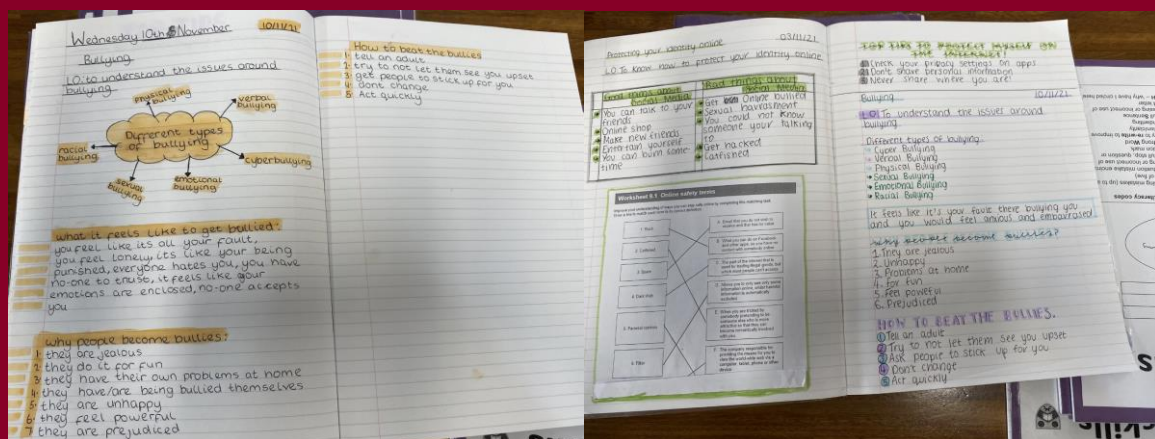 Wednesday 10th November
10/11/21
Bullying
LO: to understand the issues around
bullying
physical
bullying
verbal
bullying
Different types
of bullying
racial
bullying
cyberbullying
sexual
bullying
emotional
bullying
what it feels like to get bullied:
you feel like its all your fault,
you feel lonely, its like your being
punished, everyone hates you, you have
no-one to trust, it feels like your
emotions are enclosed, no-one accepts
you
why people become bullies:
1· they are jealous
2· they do it for fun
3· they have their own problems at home
4· they have/are being bullied themselves
5· they are unhappy
6· they feel powerful
7 they are prejudiced
How to beat the bullies
1· tell an adult
2· try to not let them see you upset
3· get people to stick up for you
4· dont change
5· Act quickly
Protecting your identity online
03/11/21
LO: To know how to protect your identity online
Good things about
Social Media
You can talk to your
friends
Online shop
Make new friends
Entertain yourself
You can burn some
time
Bad things about
Social Media
Get online bullied
Sexual harrasment
You could not know
someone your talking
to
Get hacked
Catfished
Worksheet 9.1 Online safety terms
TOP TIPS TO PROTECT MYSELF ON
THE INTERNET!
1 Check your privacy settings on apps
2 Don't share personal information
3 Never share where you are!
Bullying
10/11/21
LO: To understand the issues around
bullying
Different types of bullying
Cyber Bullying
Verbal Bullying
Physical Bullying
Sexual Bullying
Emotional Bullying
Racial Bullying
It feels like it's your fault there bullying you
and you would feel anxious and embarrased
Why people become bullies?
1. They are jealous
2. Unhappy
3. Problems at home
4. For fun
5. Feel powerful
6. Prejudiced
HOW TO BEAT THE BULLIES.
1 Tell an adult
2 Try to not let them see you upset
3 Ask people to stick up for you
4 Don't change
5 Act quickly